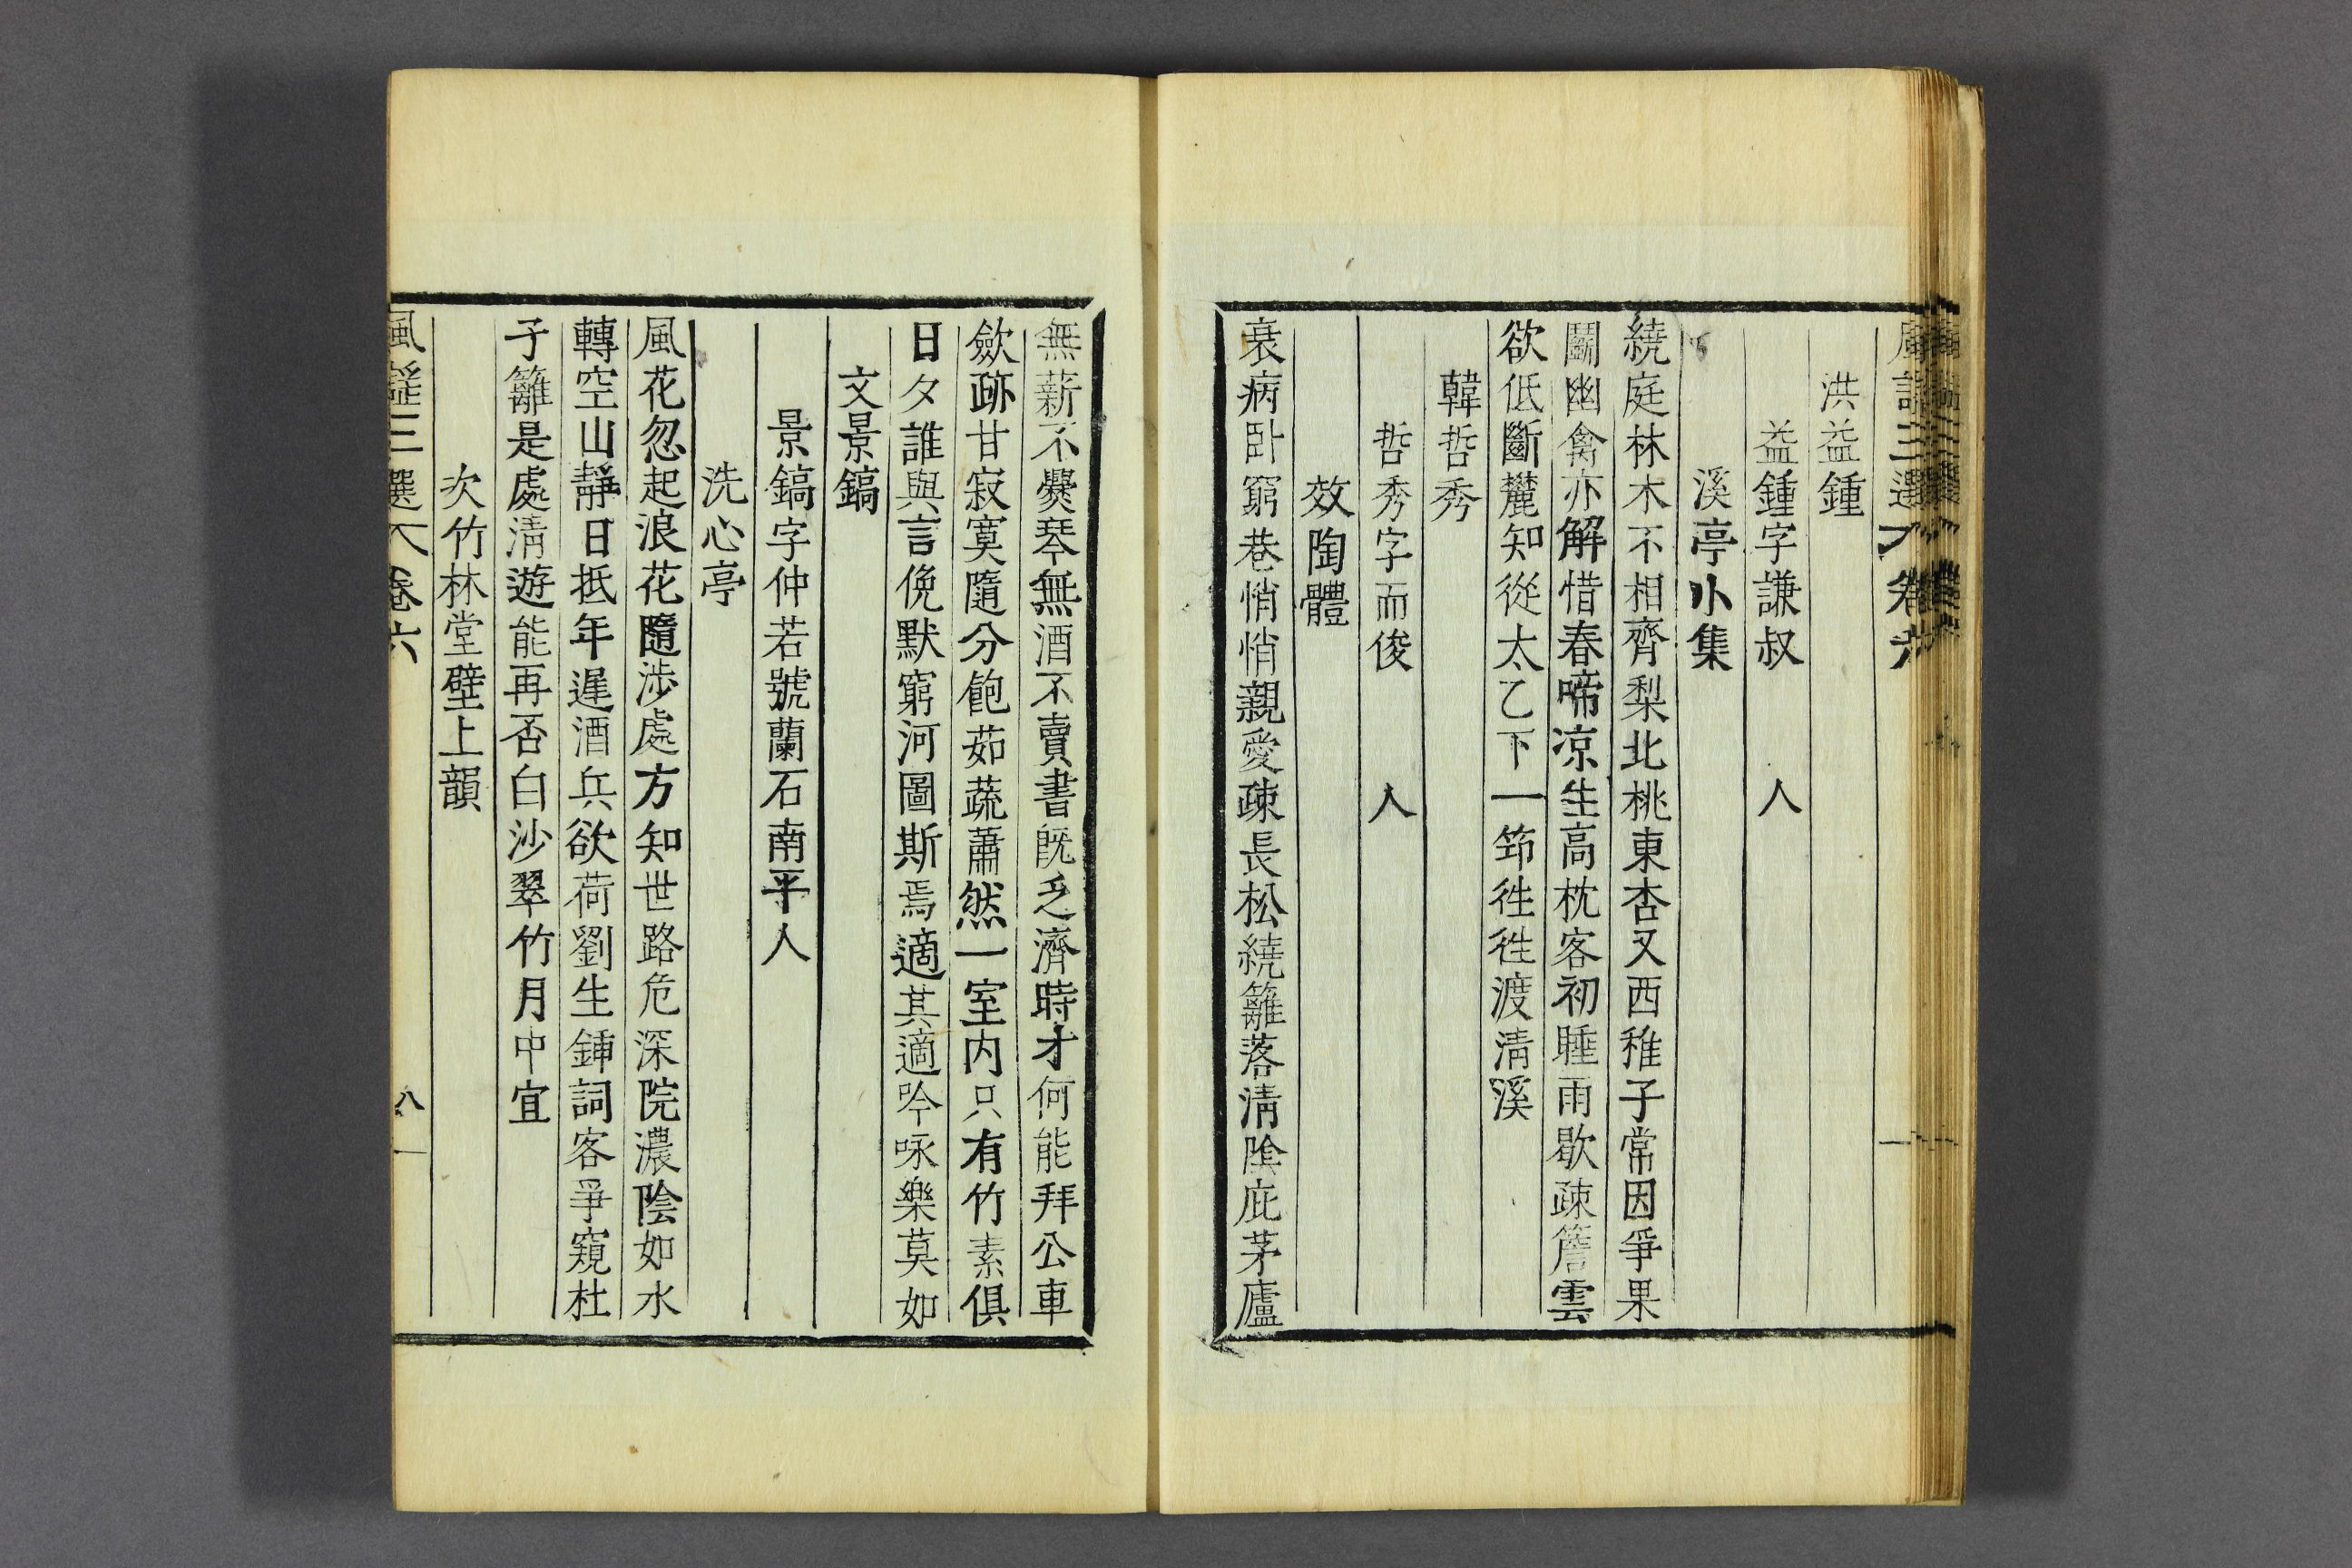 風謠三選 卷六
洪益鍾
益鍾字謙叔 人
溪亭小集
繞庭林木不相齊梨北桃東杏又西稚子常因爭果
鬪幽禽亦解惜春啼凉生高枕客初睡雨歇疎簷雲
欲低斷麓知從太乙下一笻徃徃渡清溪
韓哲秀
哲秀字而俊 人
效陶體
衰病卧窮巷悄悄親愛疎長松繞籬落清陰庇茅廬
無薪不爨琴無酒不賣書旣乏濟時才何能拜公車
歛跡甘寂寞隨分飽茹蔬蕭然一室内只有竹素俱
日夕誰與言俛默窮河圖斯焉適其適吟咏樂莫如
文景鎬
景鎬字仲若號蘭石南平人
洗心亭
風花忽起浪花隨涉處方知世路危深院濃陰如水
轉空山靜日抵年遲酒兵欲荷劉生鍤詞客爭窺杜
子籬是處清遊能再否白沙翠竹月中宜
次竹林堂壁上韻
風謠三選 卷六 八